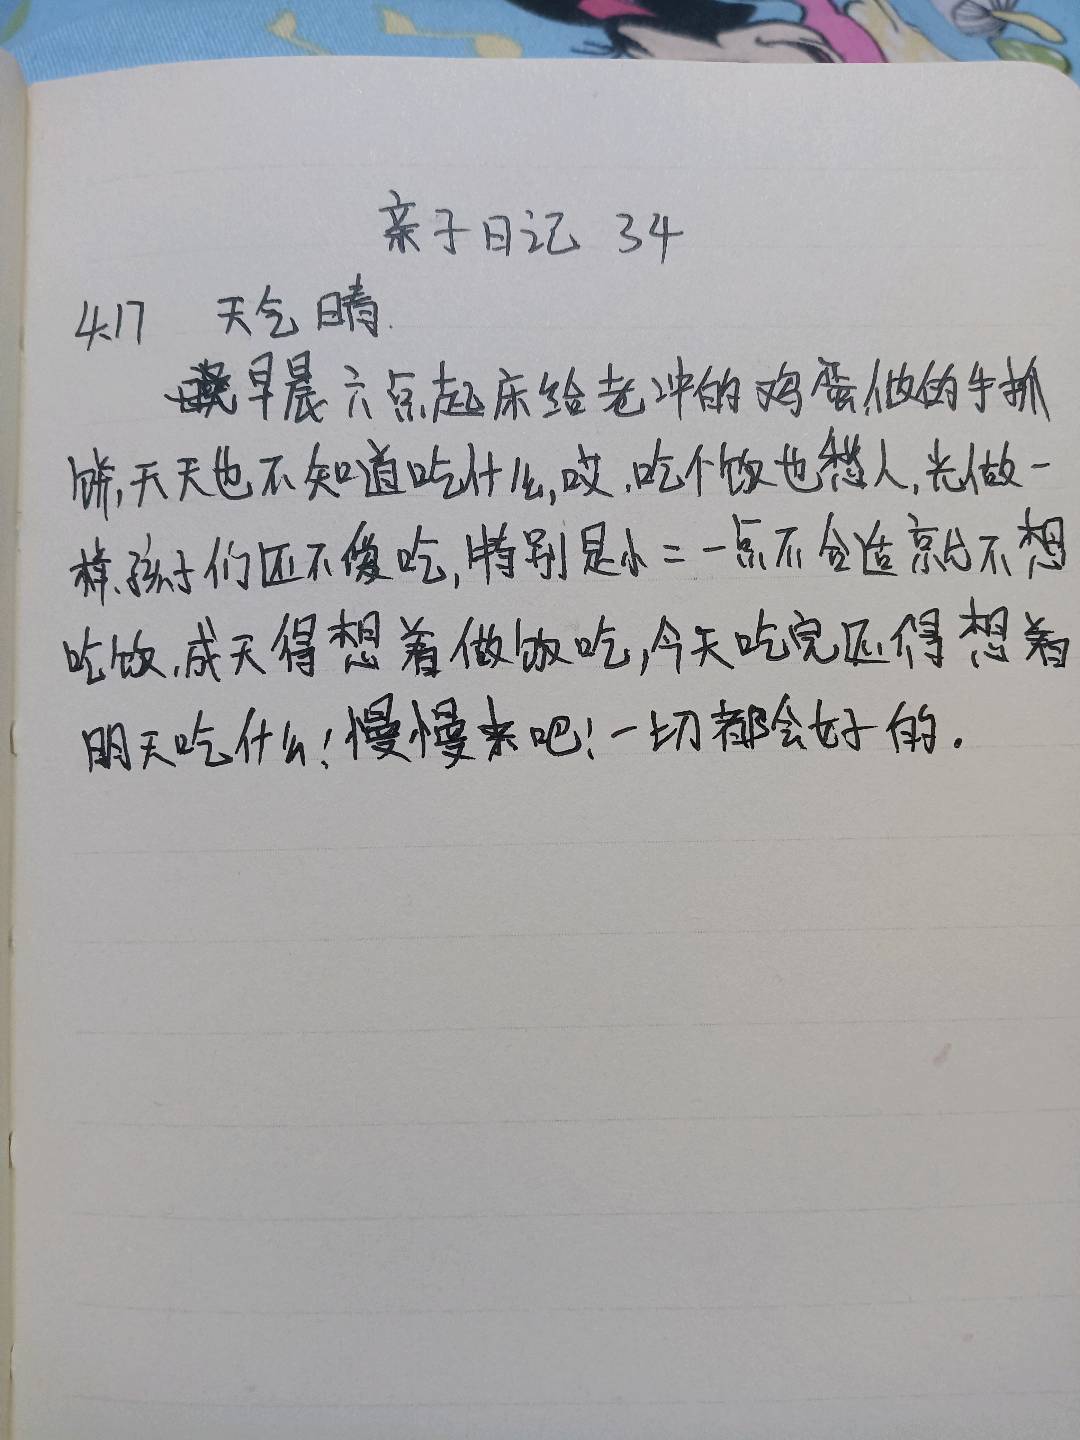 亲子日记 34
4.17 天气晴.
早晨六点起床给老冲的鸡蛋,做的手抓
饼,天天也不知道吃什么,哎,吃个饭也愁人,光做一
样,孩子们还不傻吃,特别是小二一点不合适就不想
吃饭,成天得想着做饭吃,今天吃完还得想着
明天吃什么!慢慢来吧!一切都会好的.